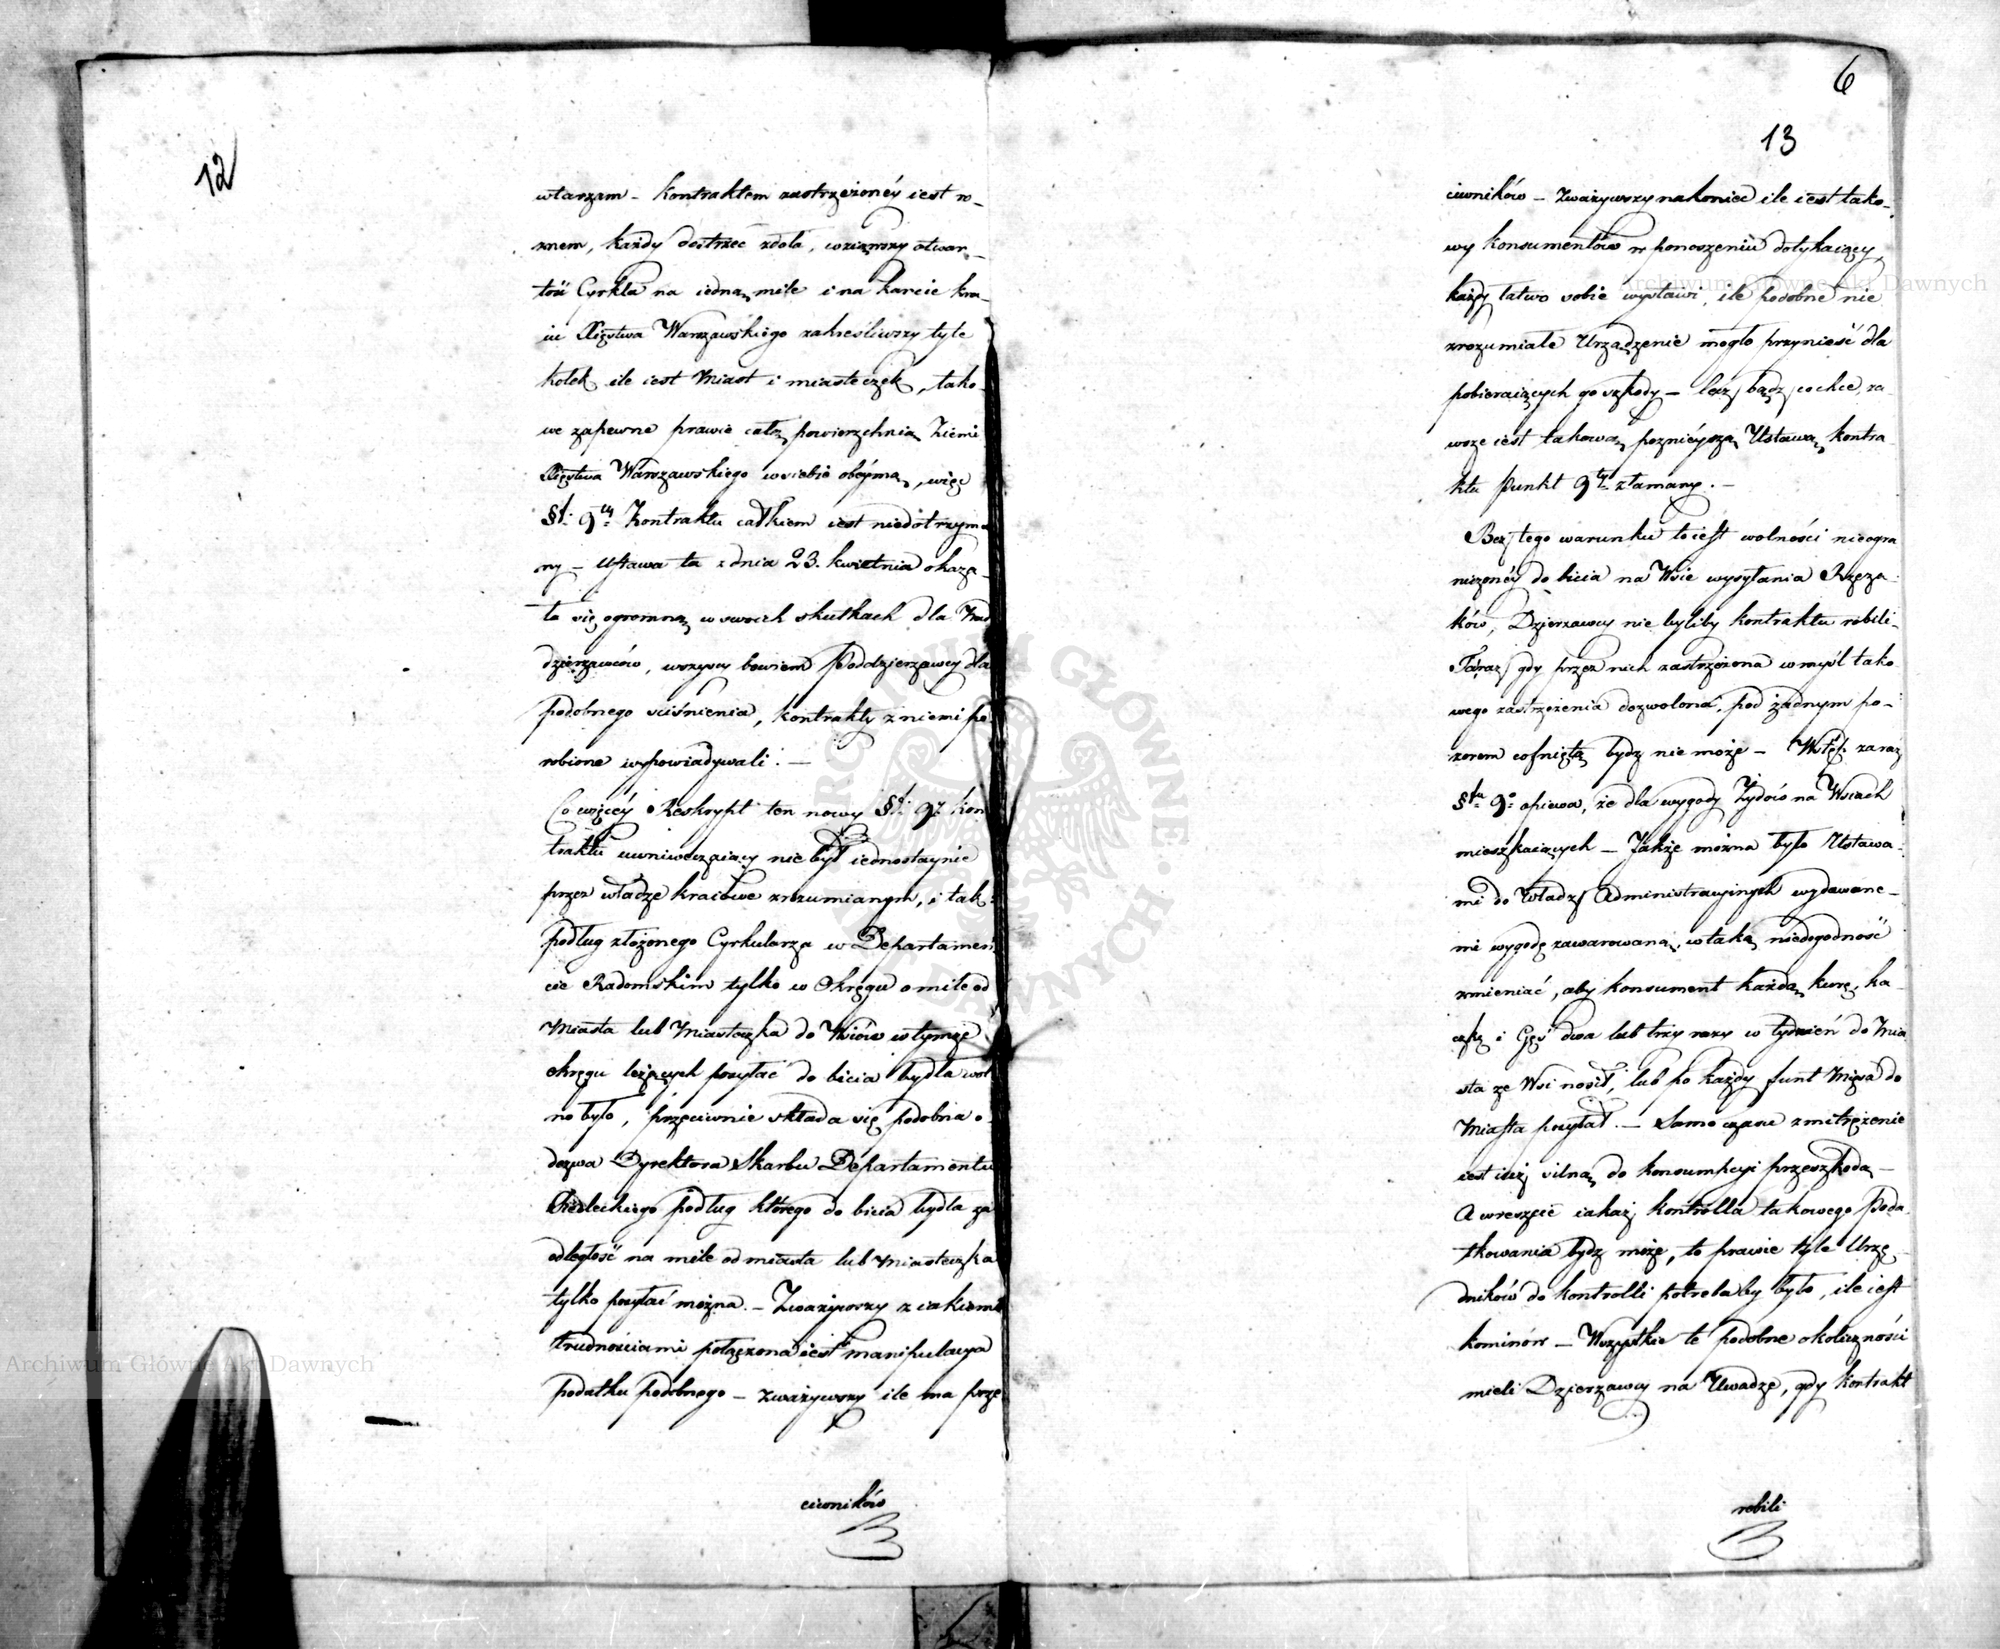 12
wtarzam – kontraktem zastrzeżonéy iest ro-
znem, każdy dostrzec zdoła, wziąwszy otwar-
tość Cyrkla na iedną mile i na karcie kra-
iu Xięstwa Warszawskiego zakreśliwszy tyle
kolek ile iest Miast i miasteczek, tako-
we zapewne prawie całą powierzchnią Ziemi
Xięstwa Warszawskiego w siebie obéymą, więc
§f. 9ty Kontraktu całkiem iest niedotrzyma
ny – Ustawa ta z dnia 23. kwietnia okaza-
ła się ogromną w swoich skutkach dla
dzierzawców, wszyscy bowiem Poddzierzawcy dla
podobnego sciśnienia, kontrakty z niemi po
robione wypowiadywali. –
Co więcéy Reskrypt ten nowy §f. 9. kon
traktu uwniweczaiący nie był iednostaynie
przez władze kraiowe zrozumianym, i tak
podług złożonego Cyrkularza w Departamen
cie Radomskim tylko w Okręgu o mile od
Miasta lub Miasteczka do Wsiów w tymze
okręgu leżących posyłać do bicia bydła wol
no było, przeciwnie składa się podobna o-
dezwa Dyrektora Skarbu Departamentu
Siedleckiego podług którego do bicia bydła za
odległość na mile od miasta lub Miasteczka
tylko posyłać można. – Zważywszy z iakiemi
trudnościami połączona iest manipulacya
podatku podobnego – zważywszy ile ma prze
ciwników
6
13
ciwników – Zważywszy nakoniec ile iest tako-
wy konsumentów w ponoszeniu dotykaiący,
każdy łatwo sobie wystawi, ile podobne nie
zrozumiałe Urządzenie mogło przynieść dla
pobieraiących go szkody – lecz bądz co chce, za
wsze iest takową poznieyszą Ustawą kontra
ktu Punkt 9ty złamany. –
Bez tego warunku to iest wolności nieogra
niczonéy do bicia na Wsie wysyłania Rzeza-
ków, Dzierzawcy nie byliby kontraktu robili-
Taraz gdy przez nich zastrzeżona w myśl tako
wego zastrzeżenia dozwolona, pod żadnym po-
zorem cofniętą bydz nie może – Wstęp zaraz
§fu 9o opiewa, że dla wygody Żydów na Wsiach
mieszkaiących – Jakże można było Ustawa-
mi do Władz Administracyinych wydawane-
mi wygodę zawarowaną, w taką niedogodność
zmieniać, aby konsument każdą kurę, ka
czkę i Gęś dwa lub trzy razy w tydzień do Mia
sta ze Wsi nosił, lub po każdy funt Mięsa do
Miasta posyłał. – Samo czasu zmitrężenie
iest iuż silną do konsumpcyi przeszkodą –
A wreszcie iakaż kontrolla takowego Poda-
tkowania bydz może, to prawie tyle Urzę
dników do kontrolli potrzeba by było, ile iest
kominów – Wszystkie te podobne okoliczności
mieli Dzierzawcy na Uwadze, gdy kontrakt
robili